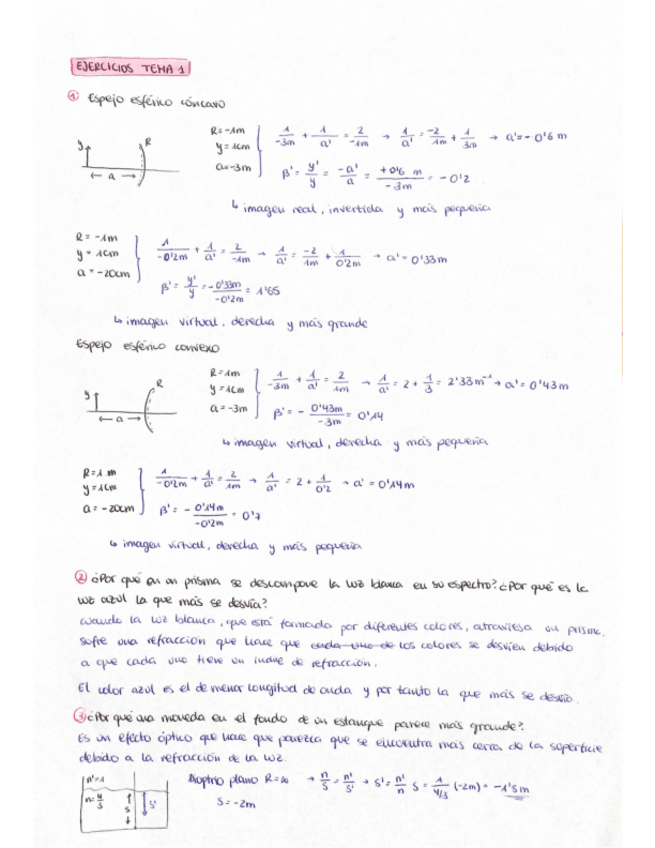 EJERCICIOS TEMA 1
① Espejo esférico cóncavo
y R a
R = -1m
y = 1cm
a = -3m
1/-3m + 1/a' = 2/-1m → 1/a' = -2/1m + 1/3m → a' = -0'6 m
β' = y'/y = -a'/a = +0'6 m/-3m = -0'2
↳ imagen real, invertida y más pequeña
R = -1m
y = 1cm
a = -20cm
1/-0'2m + 1/a' = 2/-1m → 1/a' = -2/1m + 1/0'2m → a' = 0'33m
β' = y'/y = -0'33m/-0'2m = 1'65
↳ imagen virtual, derecha y más grande
Espejo esférico convexo
y R a
R = 1m
y = 1cm
a = -3m
1/-3m + 1/a' = 2/1m → 1/a' = 2 + 1/3 = 2'33m⁻¹ → a' = 0'43m
β' = - 0'43m/-3m = 0'14
↳ imagen virtual, derecha y más pequeña
R = 1 m
y = 1cm
a = -20cm
1/-0'2m + 1/a' = 2/1m → 1/a' = 2 + 1/0'2 → a' = 0'14m
β' = - 0'14m/-0'2m = 0'7
↳ imagen virtual, derecha y más pequeña
② ¿Por qué en un prisma se descompone la luz blanca en su espectro? ¿Por qué es la
luz azul la que más se desvía?
Cuando la luz blanca, que está formada por diferentes colores, atraviesa un prisma,
sufre una refracción que hace que cada uno de los colores se desvíen debido
a que cada uno tiene un índice de refracción.
El color azul es el de menor longitud de onda y por tanto la que más se desvía.
③ ¿Por qué una moneda en el fondo de un estanque parece más grande?
Es un efecto óptico que hace que parezca que se encuentra más cerca de la superficie
debido a la refracción de la luz.
n'=1
n=4/3
s s'
Dioptrio plano R=∞ → n/s = n'/s' → s' = n'/n s = 1/4/3 (-2m) = -1'5m
s = -2m